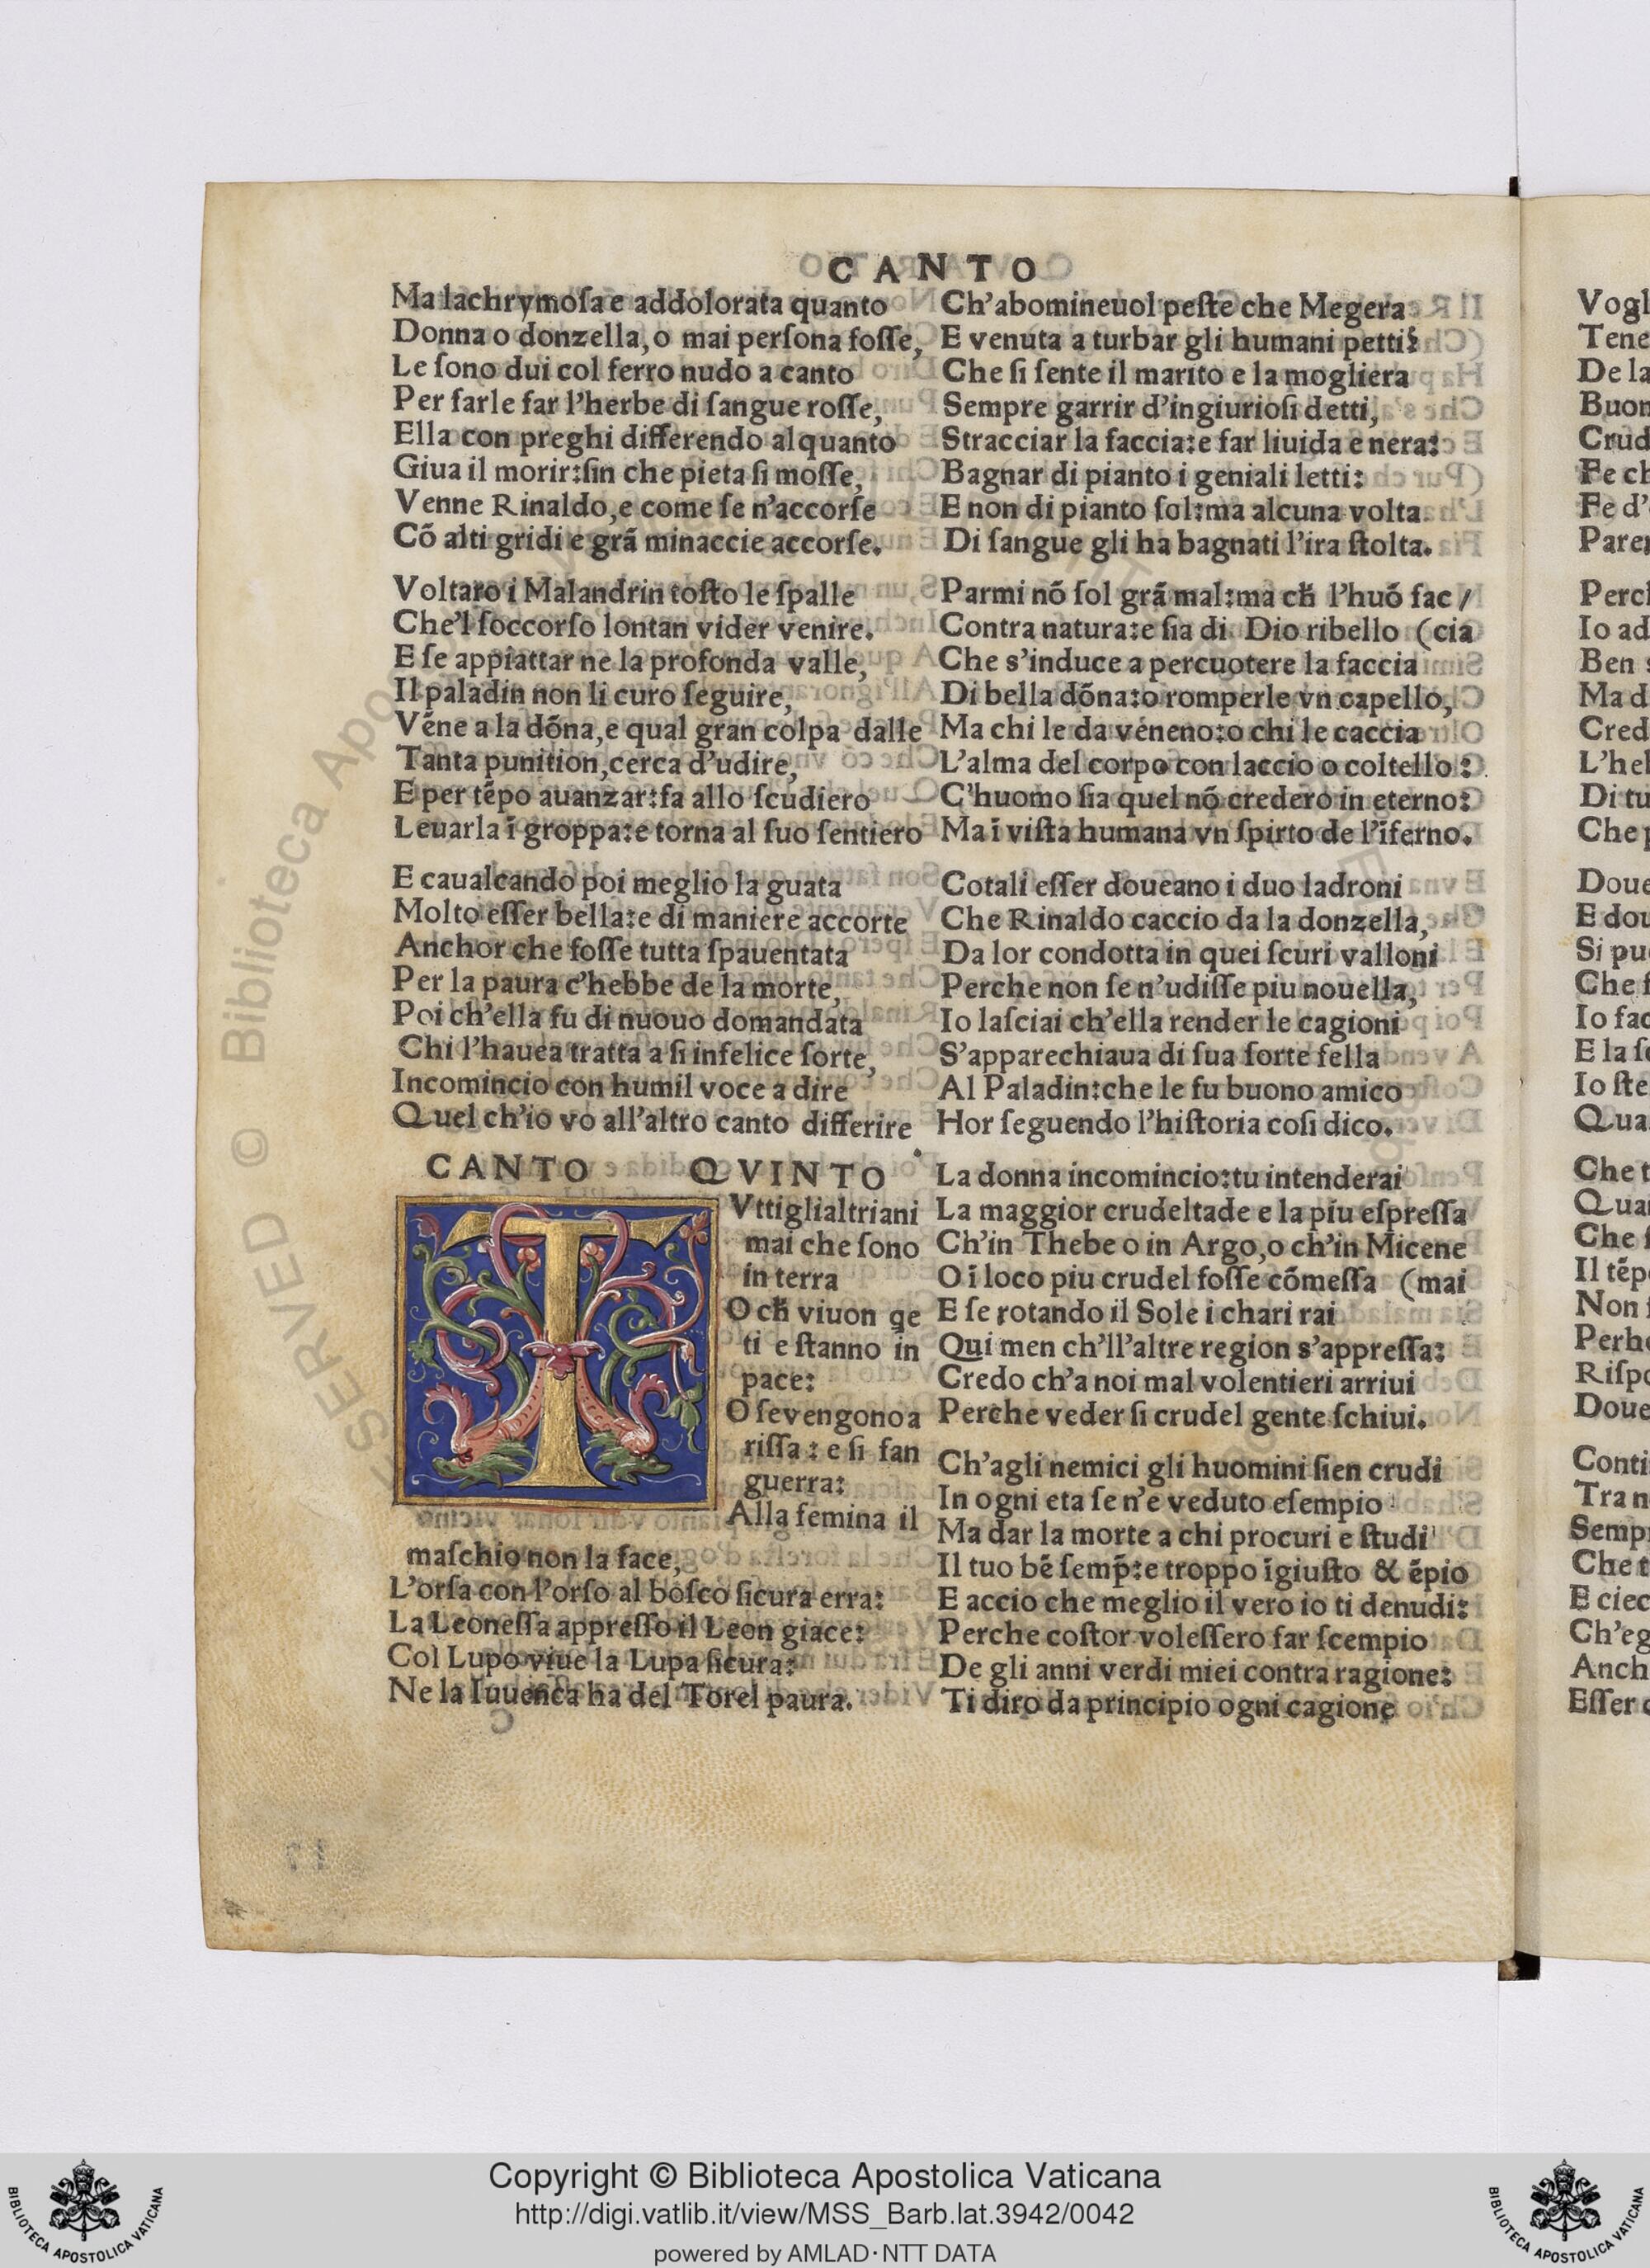 CANTO
Ma lachrymoſa e addolorata quanto
Donna o donzella, o mai perſona foſſe,
Le ſono dui col ferro nudo a canto
Per farle far l'herbe di ſangue roſſe,
Ella con preghi differendo alquanto
Giua il morir:ſin che pieta ſi moſſe,
Venne Rinaldo,e come ſe n'accorſe
Cō alti gridi e grā minaccie accorſe.
Voltaro i Malandrin toſto le ſpalle
Che'l ſoccorſo lontan vider venire.
E ſe appiattar ne la profonda valle,
Il paladin non li curo ſeguire,
Vēne a la dōna,e qual gran colpa dalle
Tanta punition,cerca d'udire,
E per tēpo auanzar:fa allo ſcudiero
Leuarla ī groppa:e torna al ſuo ſentiero
E caualcando poi meglio la guata
Molto eſſer bella:e di maniere accorte
Anchor che foſſe tutta ſpauentata
Per la paura c'hebbe de la morte,
Poi ch'ella fu di nuouo domandata
Chi l'hauea tratta a ſi infelice ſorte,
Incomincio con humil voce a dire
Quel ch'io vo all'altro canto differire
CANTO QVINTO
T
Vttiglialtriani
mai che ſono
in terra
O ch̄ viuon q̄e
ti e ſtanno in
pace:
O ſevengonoa
riſſa : e ſi fan
guerra:
Alla femina il
maſchio non la face,
L'orſa con l'orſo al boſco ſicura erra:
La Leoneſſa appreſſo il Leon giace:
Col Lupo viue la Lupa ſicura:
Ne la Iuuenca ha del Torel paura.
Ch'abomineuol peſte che Megera
E venuta a turbar gli humani petti?
Che ſi ſente il marito e la mogliera
Sempre garrir d'ingiurioſi detti,
Stracciar la faccia:e far liuida e nera:
Bagnar di pianto i geniali letti:
E non di pianto ſol:ma alcuna volta
Di ſangue gli ha bagnati l'ira ſtolta.
Parmi nō ſol grā mal:ma ch̄ l'huō fac /
Contra natura:e ſia di Dio ribello (cia
Che s'induce a percuotere la faccia
Di bella dōna:o romperle vn capello,
Ma chi le da veneno:o chi le caccia
L'alma del corpo con laccio o coltello:
C'huomo ſia quel nō credero in eterno:
Ma ī viſta humana vn ſpirto de l'īferno.
Cotali eſſer doueano i duo ladroni
Che Rinaldo caccio da la donzella,
Da lor condotta in quei ſcuri valloni
Perche non ſe n'udiſſe piu nouella,
Io laſciai ch'ella render le cagioni
S'apparechiaua di ſua forte fella
Al Paladin:che le fu buono amico
Hor ſeguendo l'hiſtoria coſi dico.
La donna incomincio:tu intenderai
La maggior crudeltade e la piu eſpreſſa
Ch'in Thebe o in Argo,o ch'in Micene
O ī loco piu crudel foſſe cōmeſſa (mai
E ſe rotando il Sole i chari rai
Qui men ch'll'altre region s'appreſſa:
Credo ch'a noi mal volentieri arriui
Perche veder ſi crudel gente ſchiui.
Ch'agli nemici gli huomini ſien crudi
In ogni eta ſe n'e veduto eſempio
Ma dar la morte a chi procuri e ſtudi
Il tuo bē ſemp̄:e troppo īgiuſto & ēpio
E accio che meglio il vero io ti denudi:
Perche coſtor voleſſero far ſcempio
De gli anni verdi miei contra ragione:
Ti diro da principio ogni cagione
Copyright © Biblioteca Apostolica Vaticana
http://digi.vatlib.it/view/MSS_Barb.lat.3942/0042
powered by AMLAD·NTT DATA
BIBLIOTECA APOSTOLICA VATICANA
BIBLIOTECA APOSTOLICA VATICANA